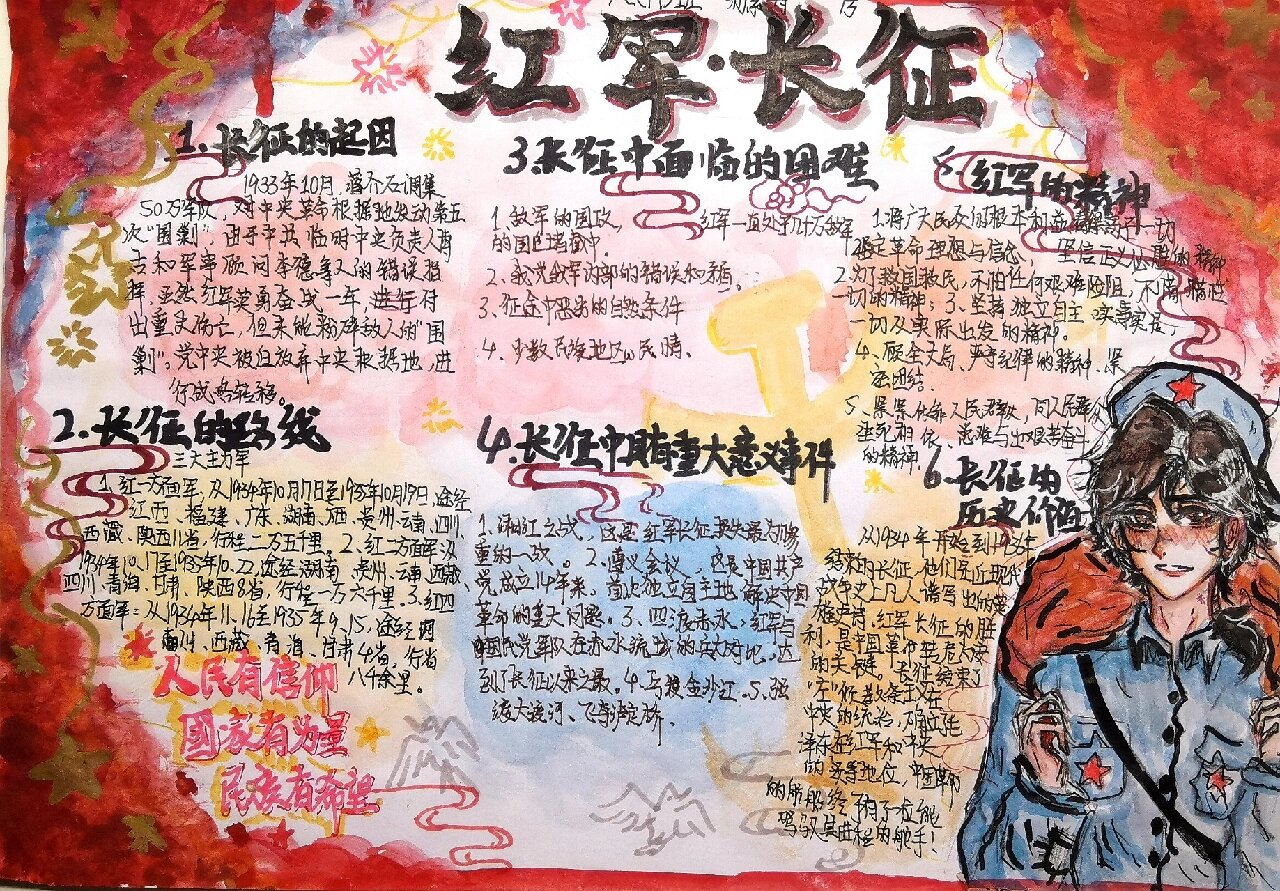 红军·长征
1.长征的起因
1933年10月,蒋介石调集
50万军队,对中央革命根据地发动第五
次"围剿",由于中共临时中央负责人博
古和军事顾问李德等人的错误指
挥,虽然红军英勇奋战一年,进行付
出重大伤亡,但未能粉碎敌人的"围
剿",党中央被迫放弃中央根据地,进
行战略转移。
2.长征的路线
三大主力军
1、红一方面军,从1934年10月17日至1935年10月19日,途经
江西、福建、广东、湖南、广西、贵州、云南、四川、
西藏、陕西11省,行程二万五千里。2、红二方面军:从
四川、青海、甘肃、陕西8省,行程一万六千里。3、红四
方面军:从1934年11、16至1935年9、15,途经
四川、西藏、青海、甘肃4省,行
八千余里。
人民有信仰
國家有力量
民族有希望
3.长征中面临的困难
1、敌军的围攻,红军一直处于几十万敌军
的围追堵截中。
2、我党我军内部的错误和矛盾。
3、征途中恶劣的自然条件
4、少数民族地区
4.长征中具有重大意义事件
1、湘江之战,这是红军长征损失最为惨
重的一战。2、遵义会议,这是中国共产
党成立14年来,首次独立自主地解决中国
革命的重大问题。3、四渡赤水,红军与
国民党军队在赤水流域的兵力对比,达
到了长征以来之最。4、巧渡金沙江。5、强
渡大渡河、飞夺泸定桥。
5.红军的精神
1、将广大民众的根本利益
坚定革命理想与信念,坚信正义必胜的精神
2、为了救国救民,不怕任何艰难险阻,不惜牺牲
一切的精神;3、坚持独立自主、实事求是,
一切从实际出发的精神。
4、顾全大局、严守纪律的精神、紧
密团结。
5、紧紧依靠人民群众,同人民群众
生死相依、患难与
的精神。
6.长征的
历史价值
从1934年开始到1936年
结束的长征,他们是近现代
战争史上凡人谱写出的英
雄史诗,红军长征的胜
利,是中国革命转危为安
的关键。长征结束了
"左"倾教条主义在
中央的统治,确立毛
泽东在红军和中央
的领导地位,中国革命
的航船终于有了位能
驾驭其进程的舵手!